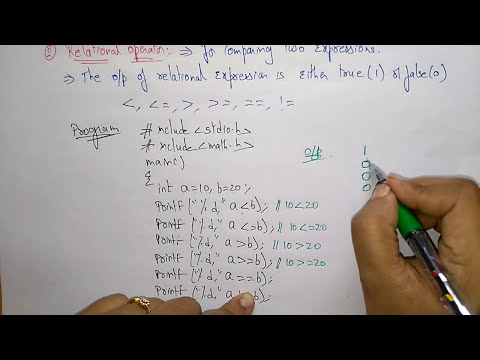 ② Relational operator: ⇒ for comparing two expressions.
⇒ The o/p of relational expression is either true(1) or false(0)
<, <=, >, >=, ==, !=
Program # include <stdio.h>
# include <math.h>
main()
{
int a=10, b=20;
printf ("%d," a <b); // 10<20
printf ("%d," a <=b); // 10<=20
printf ("%d," a >b); // 10>20
printf ("%d," a >=b); // 10>=20
printf ("%d," a ==b);
printf ("%d," a b);
o/p
1
0
0
0